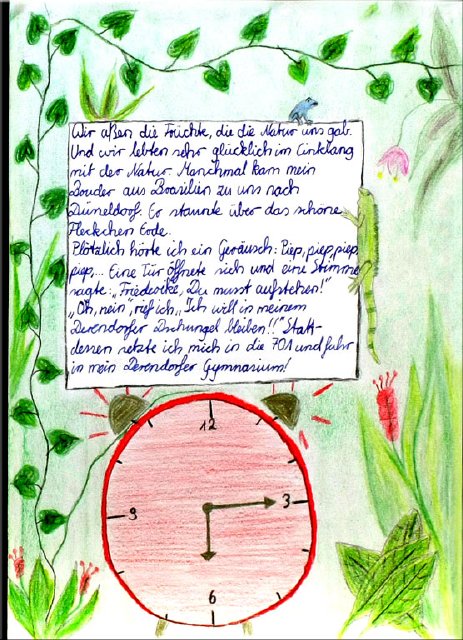 Wir aßen die Früchte, die die Natur uns gab.
Und wir lebten sehr glücklich im Einklang
mit der Natur. Manchmal kam mein
Bruder aus Brasilien zu uns nach
Düsseldorf. Er staunte über das schöne
Fleckchen Erde.
Plötzlich hörte ich ein Geräusch: Piep, piep, piep
piep,... Eine Tür öffnete sich und eine Stimme
sagte: „Friederike, Du musst aufstehen!"
„Oh, nein", rief ich, „Ich will in meinem
Derendorfer Dschungel bleiben!!" Statt-
dessen setzte ich mich in die 701 und fuhr
in mein Derendorfer Gymnasium!
12
9 3
6